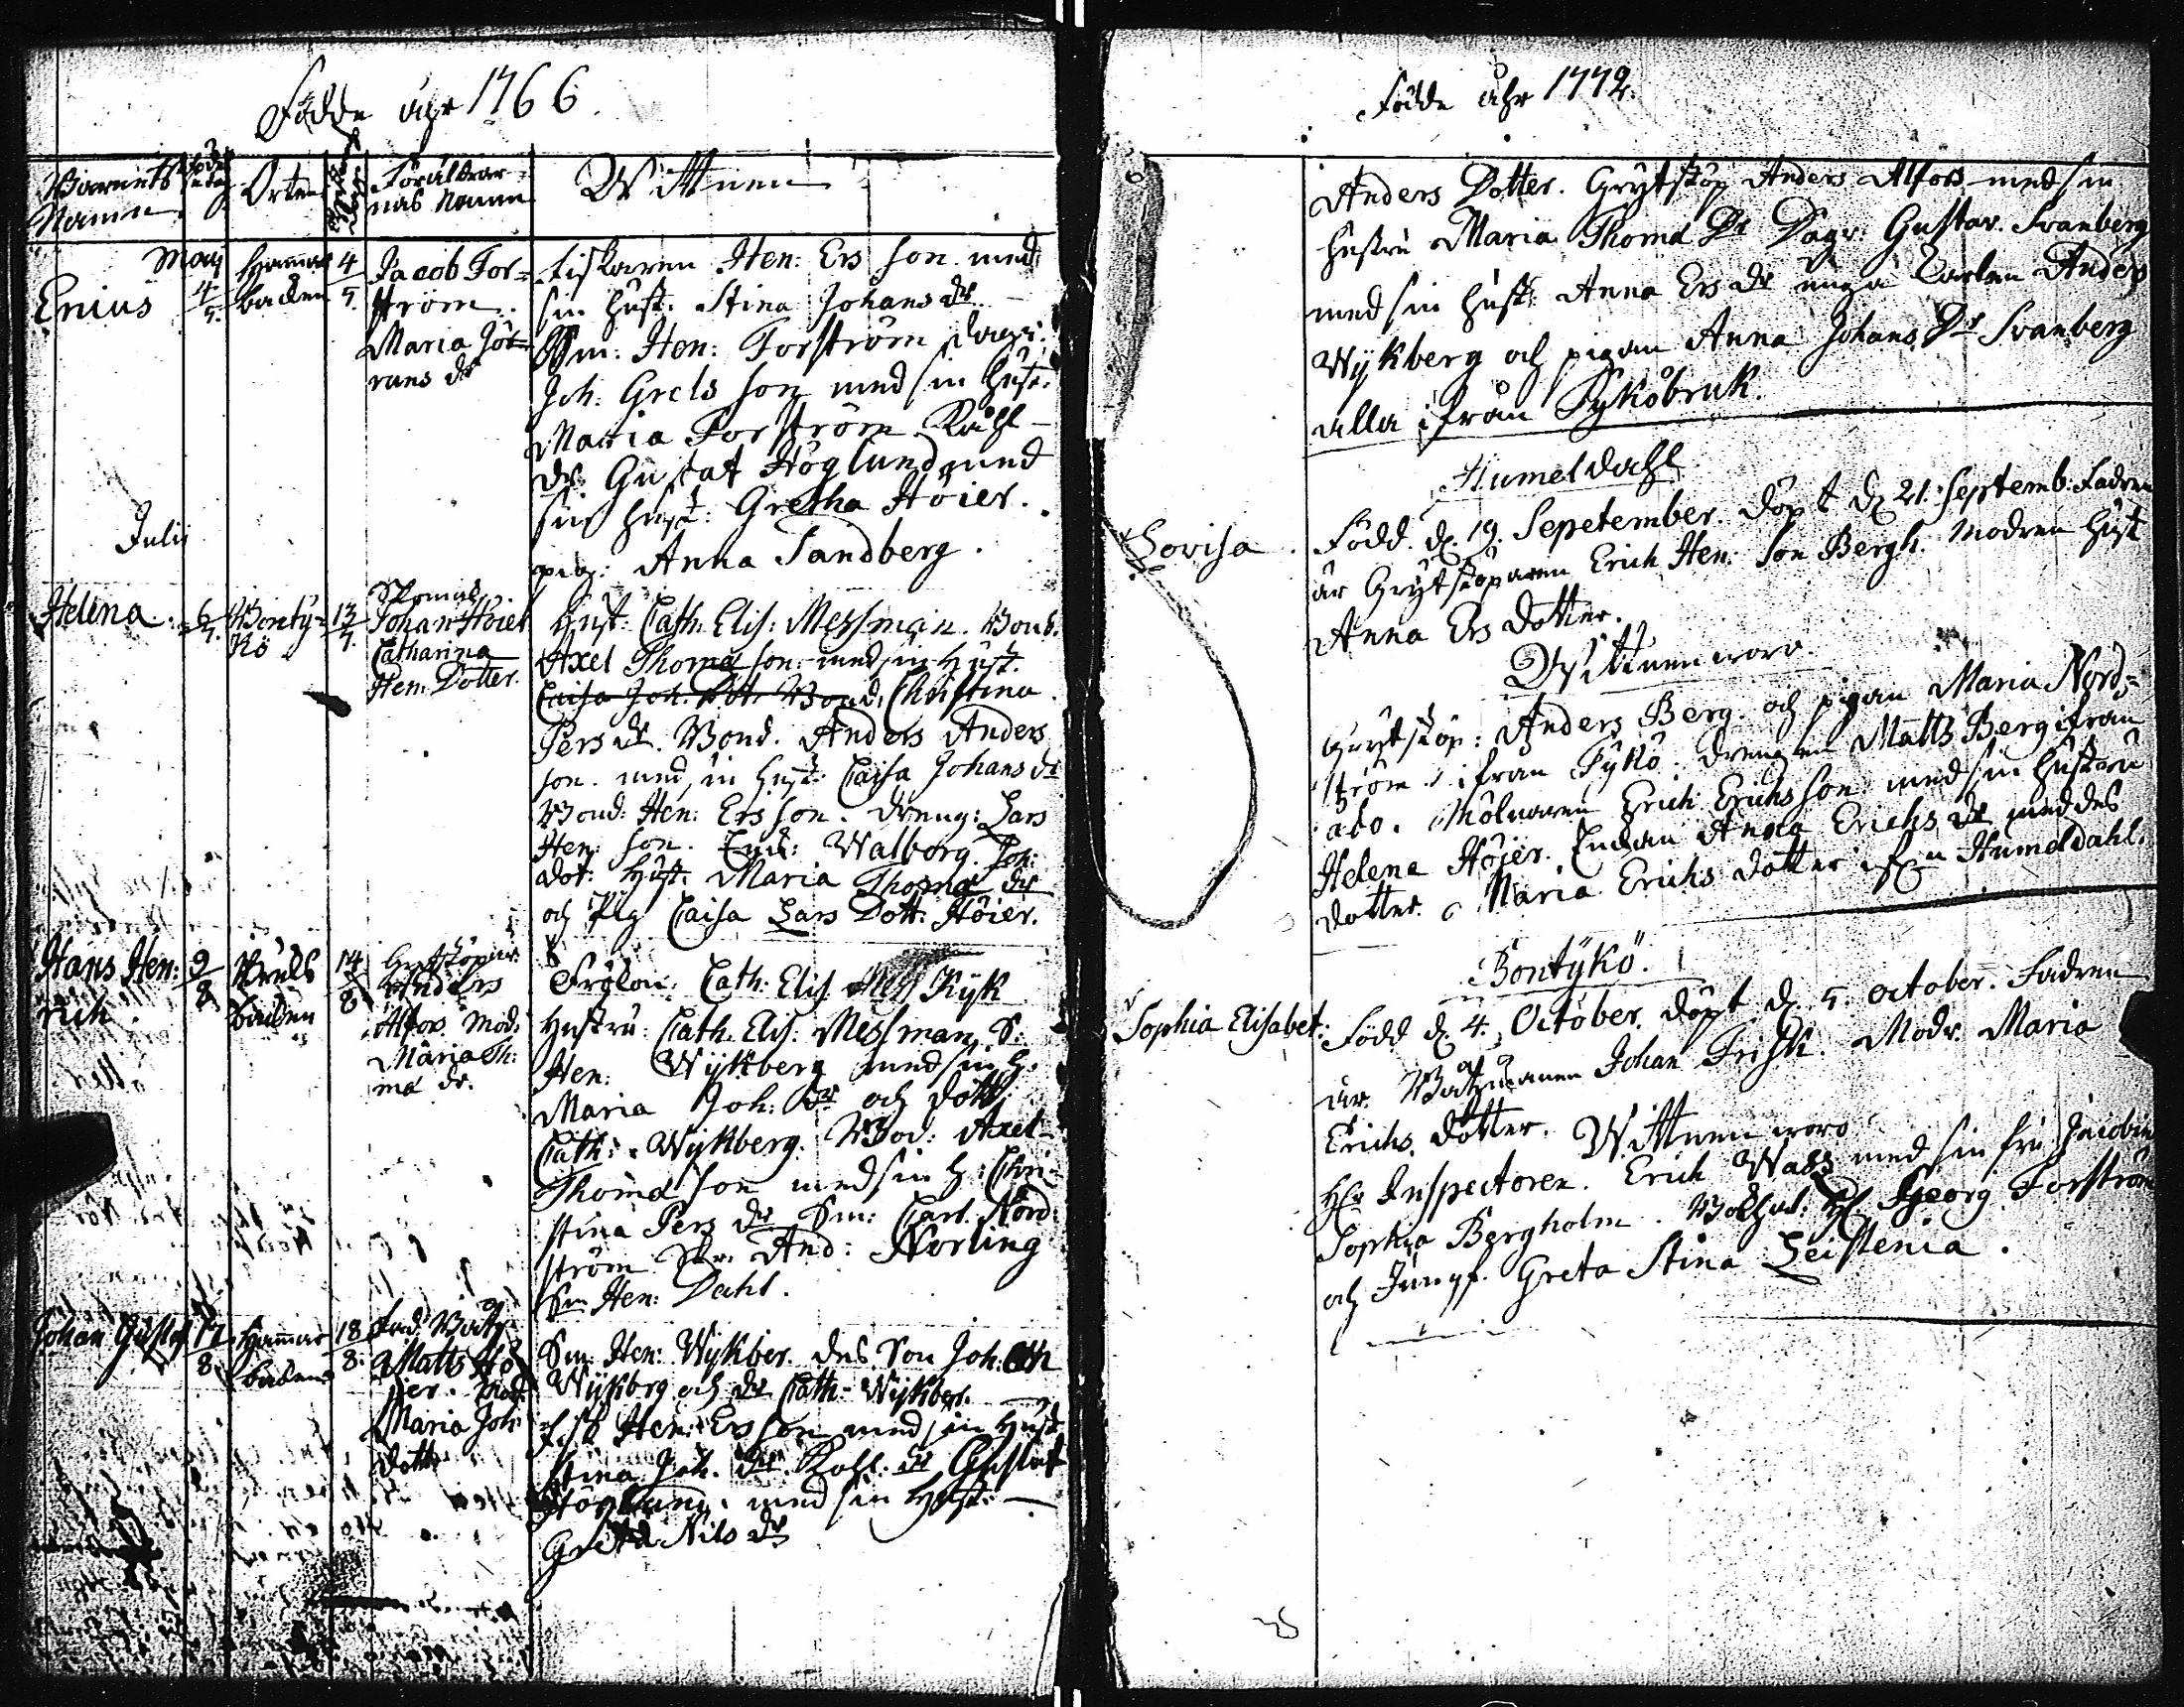 Födde åhr 1766.
Barnets Namn
Orten
Föräldrar-
nas Namn
Wittnen
Maij
Enius
4/5.
Hammar
backen
4/5.
Jacob For-
ström.
Maria Jör-
rans dr
Fiskaren Hen: Ers son med
sin hust. Stina Johans dr
Sm: Hen: Forström dagv:
Joh: Grels son med sin hust:
Maria Forström Kåhl-
dr: Gustaf Höglund med
sin hust: Gretha Höier.
pig: Anna Sandberg.
Julii
Helena.
6/7.
Bonty-
kö
13/7.
Skomak.
Johan Höier
Catharina
Hen: Dotter.
Hust: Cath: Elis: Messman. Bond.
Axel Thomæ son med sin Hust.
Caisa Joh: Dotr Bond: Christina
Pers dr. Bond. Anders Anders
son. med sin hust: Caisa Johans dr
Bond: Hen: Ers son. dreng: Lars
Hen: son. Enk: Walborg. Joh:
dot: Hust. Maria Thomæ dr
och Pig Caisa Lars Dott: Höier.
Hans Hen:
rich.
9/8
Bruks
backen
14/8
Grytstöpar
Anders
Alfors. Mod:
Maria Th:
mæ dr.
Fröken: Cath: Elis. Mess Ryk
Hustru: Cath: Elis: Messman. S:
Hen: Wijkberg med sin H.
Maria Joh: dr och dott:
Cath: Wijkberg. Bod: Axel
Thomæ son med sin H: Chri-
stina Pers dr Sm: Carl Nord-
ström Skr. And: Norling
Sm Hen: Dahl.
Johan Gustaf
17/8
Hammar
backen
18/8.
Fad: Båtz
Matts Hö
jer. Mod
Maria Joh
dott
Sm: Hen: Wijkber. des Son Joh: Cth
Wijkbrg och dr Cath: Wijkber.
Fisk Hen: Ers son med sin Hust
Stina Joh. dr. Kohl: dr Gustaf
Höglund. med sin Hust:
Greta Nils dr
Födde åhr 1772.
Anders Dotter. Grytstöp Anders Alfors med sin
hustru Maria Thomæ Dr Dagv: Gustav. Svanberg
med sin hust: Anna Ers dr unga Carlen Anders
Wykberg och pigan Anna Johans Dr Svanberg
alla ifrån Tykö bruk.
Humeldahl
Lovisa.
Född. d. 19. Sepetember. döpt d. 21. Septemb: Fadren
är Grytstöparen Erich Hen: son Bergh. Modren Hust
Anna Ers dotter.
Wittnen woro
Grytstöp: Anders Berg. och pigan Maria Nord-
ström. ifrån Tykö. drengen Matts Berg ifrån
abo. Mölnaren Erich Erichs son med sin hustru
Helena Höjer. Enkan Anna Erichs dr med des
dotter. Maria Erichs dotter ifrn Humeldahl.
Bontykö.
Sophia Elisabet:
Född d. 4. October. döpt d. 5. october. Fadren
är. Båtzmanen Johan Frisk. Modr. Maria
Erichs. dotter. Wittnen woro
Hr Inspectoren. Erich Wadz med sin fru Jacobin
Sophia Bergholm. Bokhal: H. Georg Forström
och Jungf. Greta Stina Leistenia.